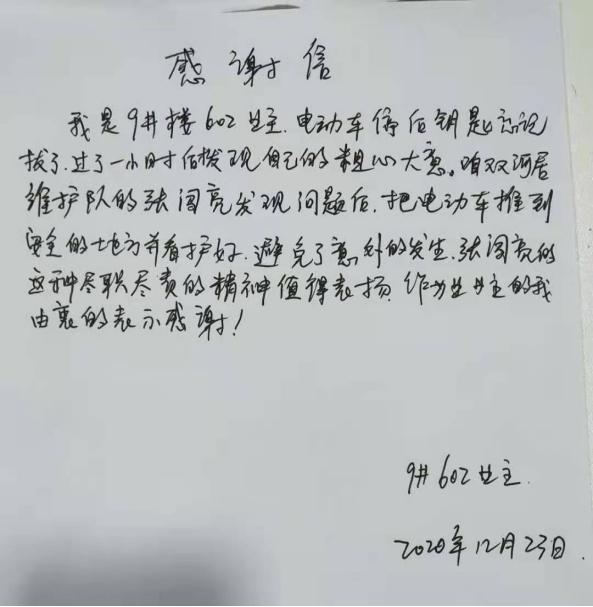 感谢信
我是9#楼602业主.电动车停后钥匙忘记
拔了.过了一小时才后发现自己的粗心大意。咱双河居
维护队的张闯亮发现问题后.把电动车推到
安全的地方并看护好.避免了意外的发生.张闯亮的
这种尽职尽责的精神值得表扬.作为业主的我
由衷的表示感谢！
9# 602业主.
2020年12月23日.